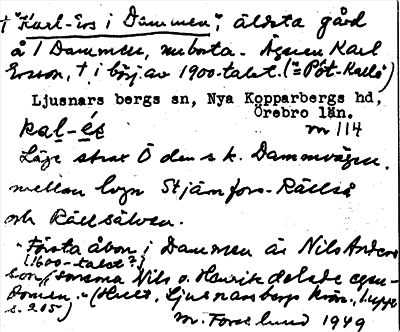 † "Karl-Ers i Dammen", äldsta gård
å 1 Dammen, nu borta. Ägaren Karl
Ersson, † i börj. av 1900-talet. (="Pöt-Kalle")
Ljusnars bergs sn, Nya Kopparbergs hd,
Örebro län.
kal-és m 114
Läge strax Ö den s.k. Dammvägen,
mellan lvgn Stjärnfors-Rällså
och Rällsälven.
"Första åbon i Dammen är Nils Anders-
(1600-talet?)
son, sönerna Nils o. Henrik delade egen-
domen." (Hult, Ljusnarsbergs krön., uppl.
s. 205.)
M. Forslund 1949